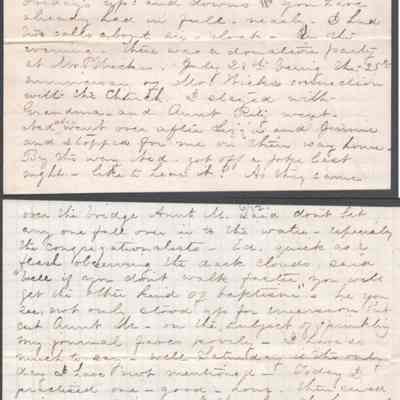 Friday's ups and downs you have
already had in full - nearly. I had
two calls about six o'clock - In the
evening - there was a donation party
at Mr Wicks. July 25th being the 25th
anniversary of Mr Wicks connection
with the Church. I stayed with
Grandma - and Aunt
Ned went over after and Jennie
and stopped for me on their way home.
By the way Ned. got off a joke last
night - like to hear it? As they came
over the bridge Aunt M. said dont let
any one fall over in to the water - especially
the Congregationalists - Ed. quick as a
flash observing the dark clouds said
"Well if you don't walk faster, you will
get the other kind of baptism" - he you
see, not only stood up for immersion but
cut Aunt M - on the subject of sprinkling
my journal fares poorly - I have so
much to say - well Saturday is the only
day I have not mentioned - Today I
practised one - good - long - then